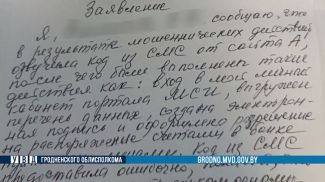 Заявление
Я, сообщаю, что
в результате мошеннических действий
озвучила код из СМС от сайта А1,
после чего были выполнены такие
действия как: вход в мой личный
кабинет портала МСИ, выгружен
перечень данных, создана электрон-
ная подпись и оформлено разрешение
на распоряжение счетами в банке
код из СМС
предоставила ошибочно,
УВД ГРОДНЕНСКОГО ОБЛИСПОЛКОМА
GRODNO.MVD.GOV.BY